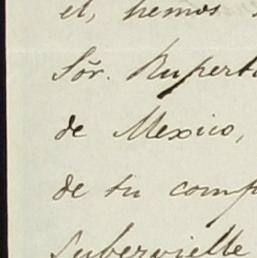 el, hemos
Sõr. Ruperto
de Mexico,
de tu comp
Subervielle